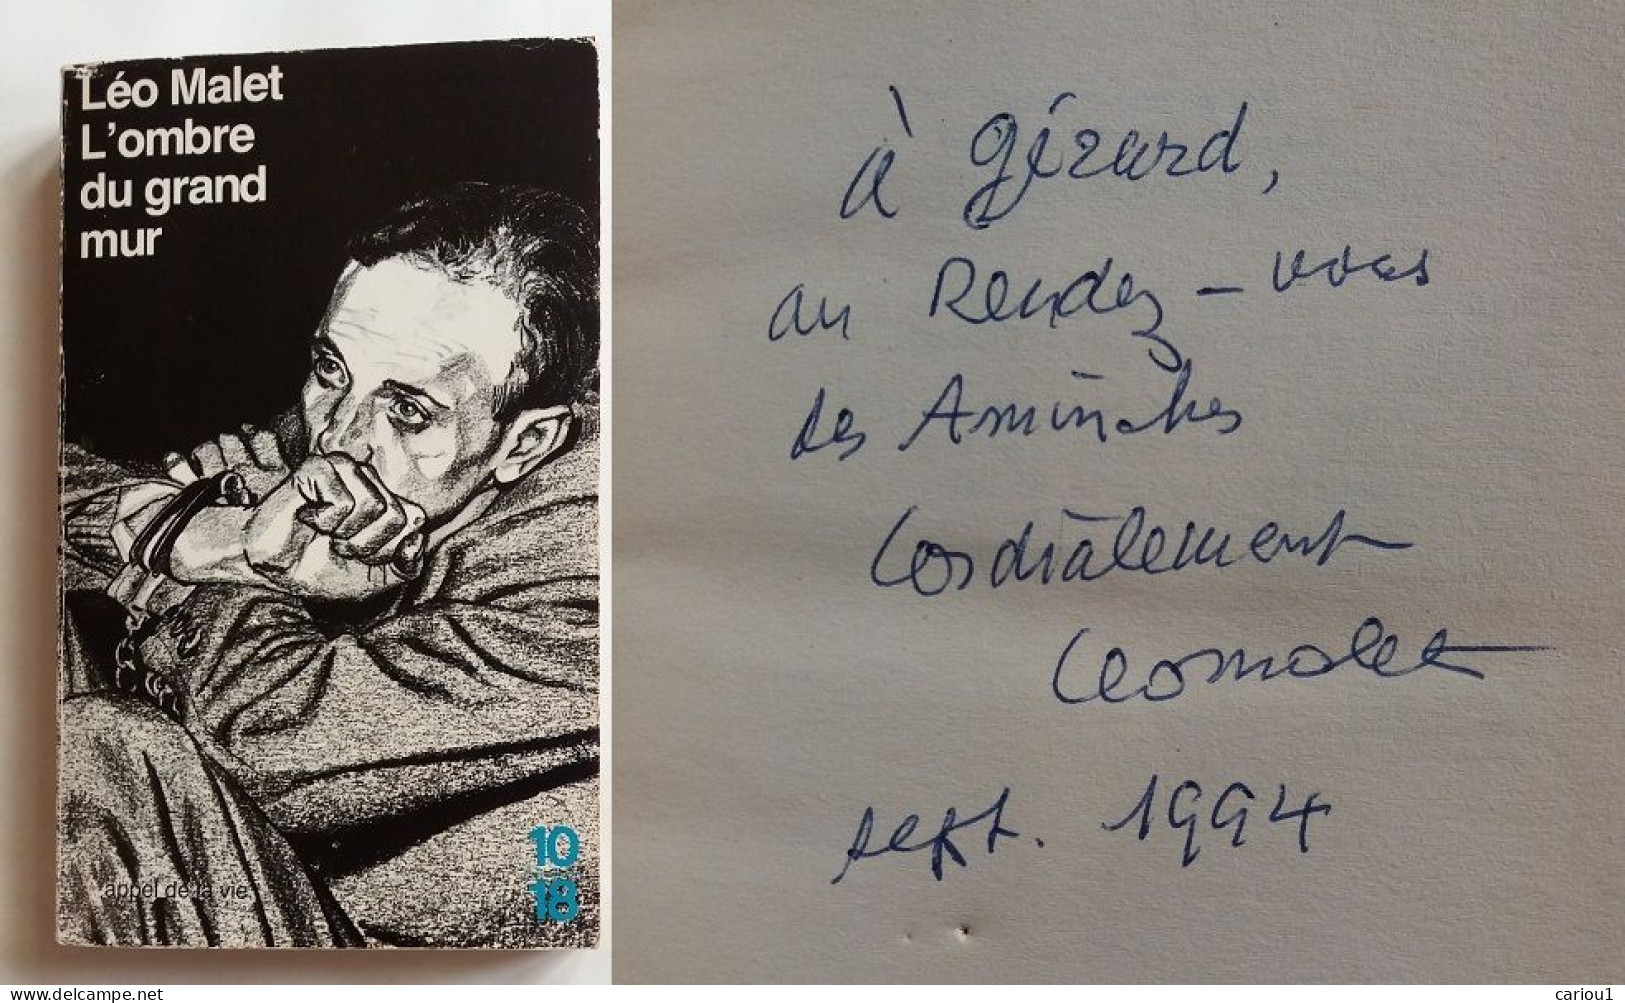 Léo Malet
L'ombre
du grand
mur
10
18
appel de la vie
à Gérard,
au Rendez-vous
des Aminches
Cordialement
Leo Malet
sept. 1994
delcampe.net
cariou1